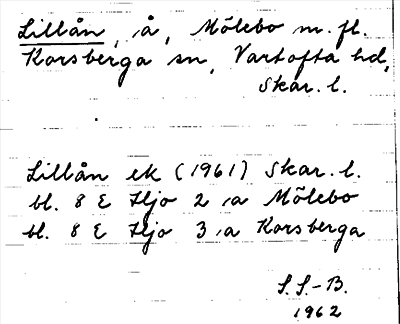 Lillån, å, Mölebo m. fl.
Korsberga sn, Vartofta hd,
Skar. l.
Lillån ek (1961) Skar. l.
bl. 8 E Hjo 2 a Mölebo
bl. 8 E Hjo 3 a Korsberga
S. S.-B.
1962